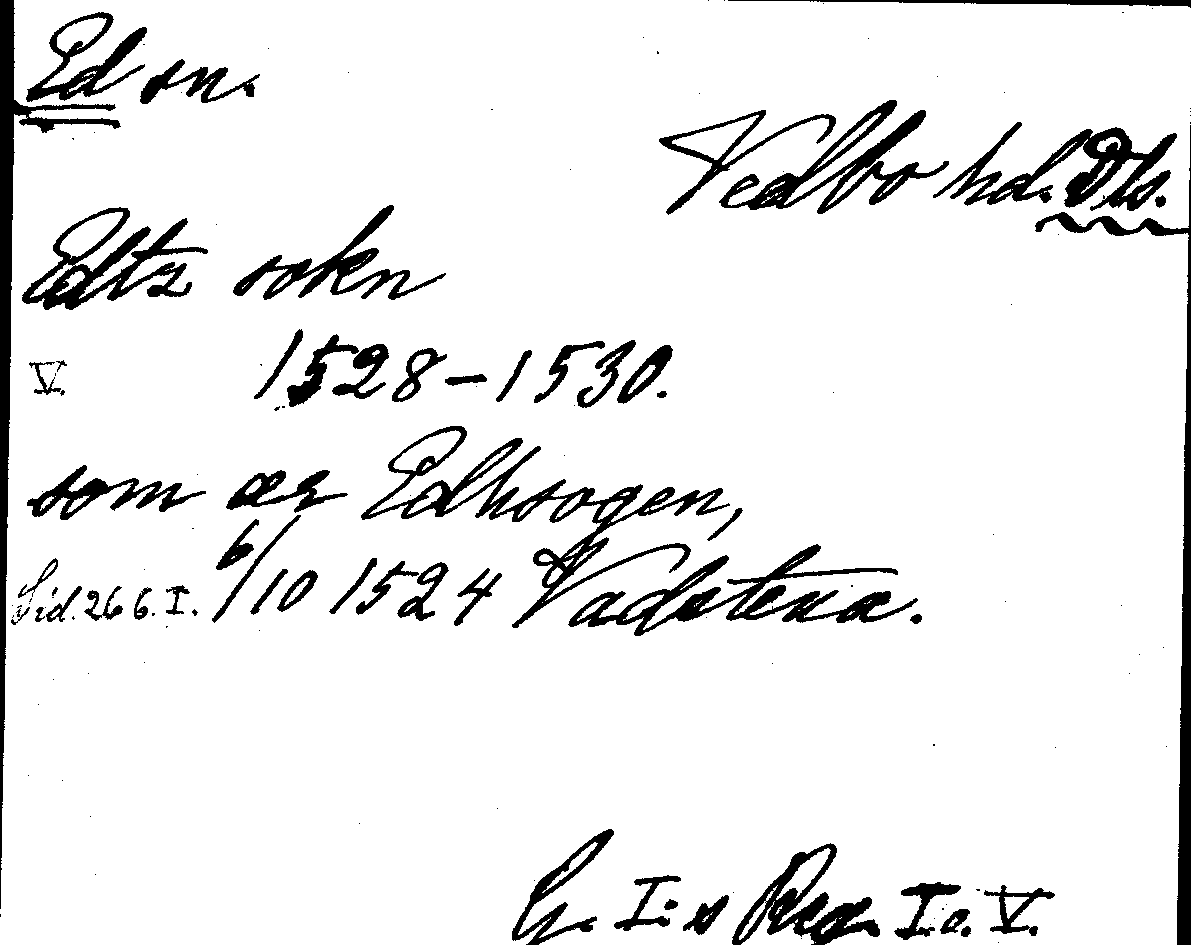 Ed sn.
Vedbo hd. Dls.
Edtz sokn
V. 1528-1530.
som ær Edhsogen,
Sid. 266. I. 6/10 1524 Vadstena.
G. I:s Reg. I o. V.